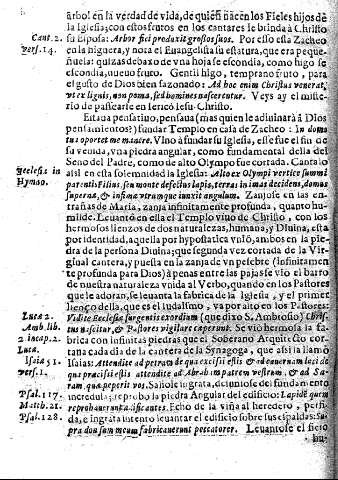 arbol en la verdad de vida, de quien nacen los Fieles hijos de
la Iglesia; con estos frutos en los cantares le brinda à Christo
Cant.2. su Esposa: Arbor fici produxit grossos suos. Por esso està Zacheo
vers.14. en la higuera, y nota el Evangelista su estatura, que era peque-
ñuela: quizàs debaxo de vna hoja se escondia, como higo se
escondia, nuevo fruto. Gentil higo, temprano fruto, para
el gusto de Dios bien sazonado: Ad hoc enim Christus venerat,
vt ex lignis, non poma, sed homines nascerentur. Veys ay el miste-
rio de passearse en Iericò Iesu-Christo.
Estaua pensatiuo, pensaua (mas quien le adiuinarà à Dios
pensamientos?) fundar Templo en casa de Zacheo: In domo
tua oportet me manere. Vino à fundar su Iglesia, esse fue el fin de
su venida, vna piedra angular, como fundamental desta del
Seno del Padre, como de alto Olympo fue cortada. Cantalo
Eccles. in assi en esta solemnidad la Iglesia: Alto ex Olympi vertice summi
Hymno. parentis Filius, seu monte desectus lapis, terras in imas decidens, domus
supernæ, & infimæ vtrumque iunxit angulum. Zanjòse en las en-
trañas de Maria, zanja infinitamente profunda, quanto hu-
milde. Leuantò en ella el Templo viuo de Christo, con los
hermosos lienzos de dos naturalezas, humana, y Diuina, esta
por identidad, aquella por hypostatica vniò, ambos en la pie-
dra de la persona Diuina; que segunda vez cortada de la Vir-
ginal cantera, y puesta en la zanja de vn pesebre (infinitamen-
te profunda para Dios) à penas entre las pajas se viò el barro
de nuestra naturaleza vnida al Verbo, quando en los Pastores
que le adoran, se leuanta la fabrica de la Iglesia, y el primer
lienço della, que es el Iudaismo, va por alto en los Pastores:
Luca 2. Videte Ecclesiæ surgentis exordium (que dixo S. Ambrosio) Christus
Amb. lib. nascitur, & Pastores vigilare cœperunt. Se viò hermosa la fabri-
2 in cap.2. ca con infinitas piedras que el Soberano Arquitecto cor-
Luca. tana cada dia de la cantera de la Synagoga, que assi la llamò
Isaia 51. Isaias: Attendite ad petram de qua excisi estis & ad cauernam laci de
vers.1. qua præcisi estis attendite ad Abraham patrem vestrum, & ad Sa-
ram, quæ peperit vos. Saliole ingrata, de iunto se del fundamento
Psal.117. incredula; reprobò la piedra Angular del edificio: Lapidẽ quem
Matth.21. reprobauerunt ædificantes. Echò de la viña al heredero, perfi-
Psal.128. da, è ingrata intentò leuantar el edificio sobre sus espaldas: Su-
pra dorsum meum fabricauerunt peccatores. Leuantose el